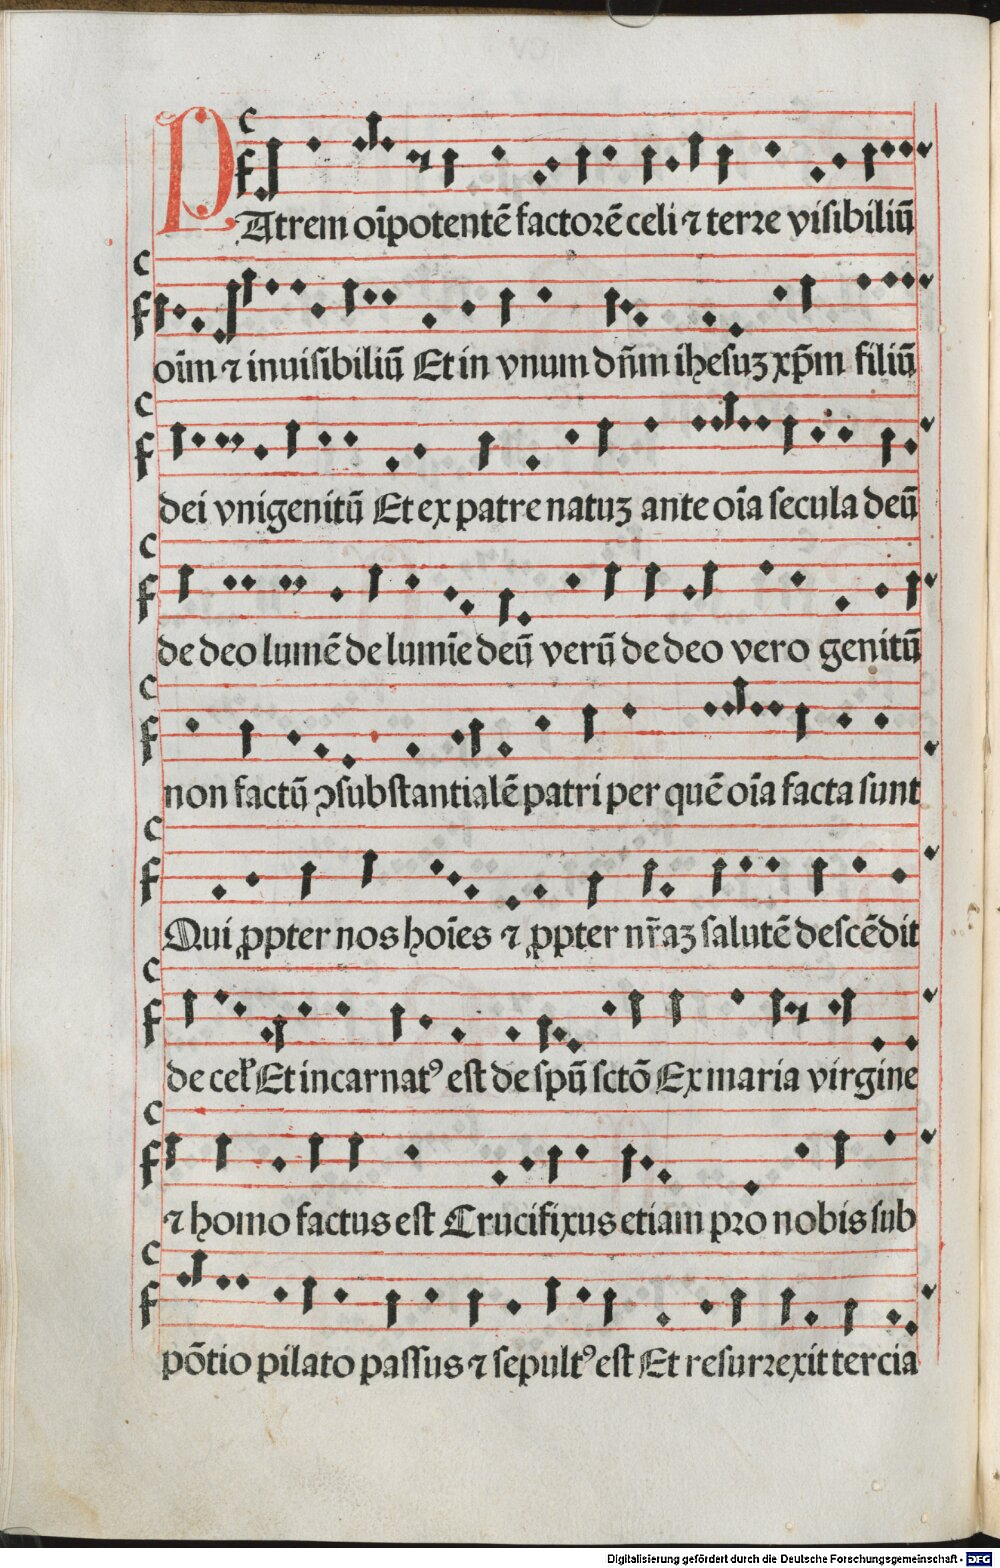 PAtrem oīpotentē factorē celi ⁊ terre visibiliū
oīm ⁊ inuisibiliū Et in vnum dn̄m ihesuꝫ xp̄m filiū
dei vnigenitū Et ex patre natuꝫ ante oīa secula deū
de deo lumē de lumīe deū verū de deo vero genitū
non factū ↄsubstantialē patri per quē oīa facta sunt
Qui ꝓpter nos hoīes ⁊ ꝓpter nr̄aꝫ salutē descēdit
de cel' Et incarnatꝰ est de spū sctō Ex maria virgine
⁊ homo factus est Crucifixus etiam pro nobis sub
pōtio pilato passus ⁊ sepultꝰ est Et resurrexit tercia
Digitalisierung gefördert durch die Deutsche Forschungsgemeinschaft - DFG